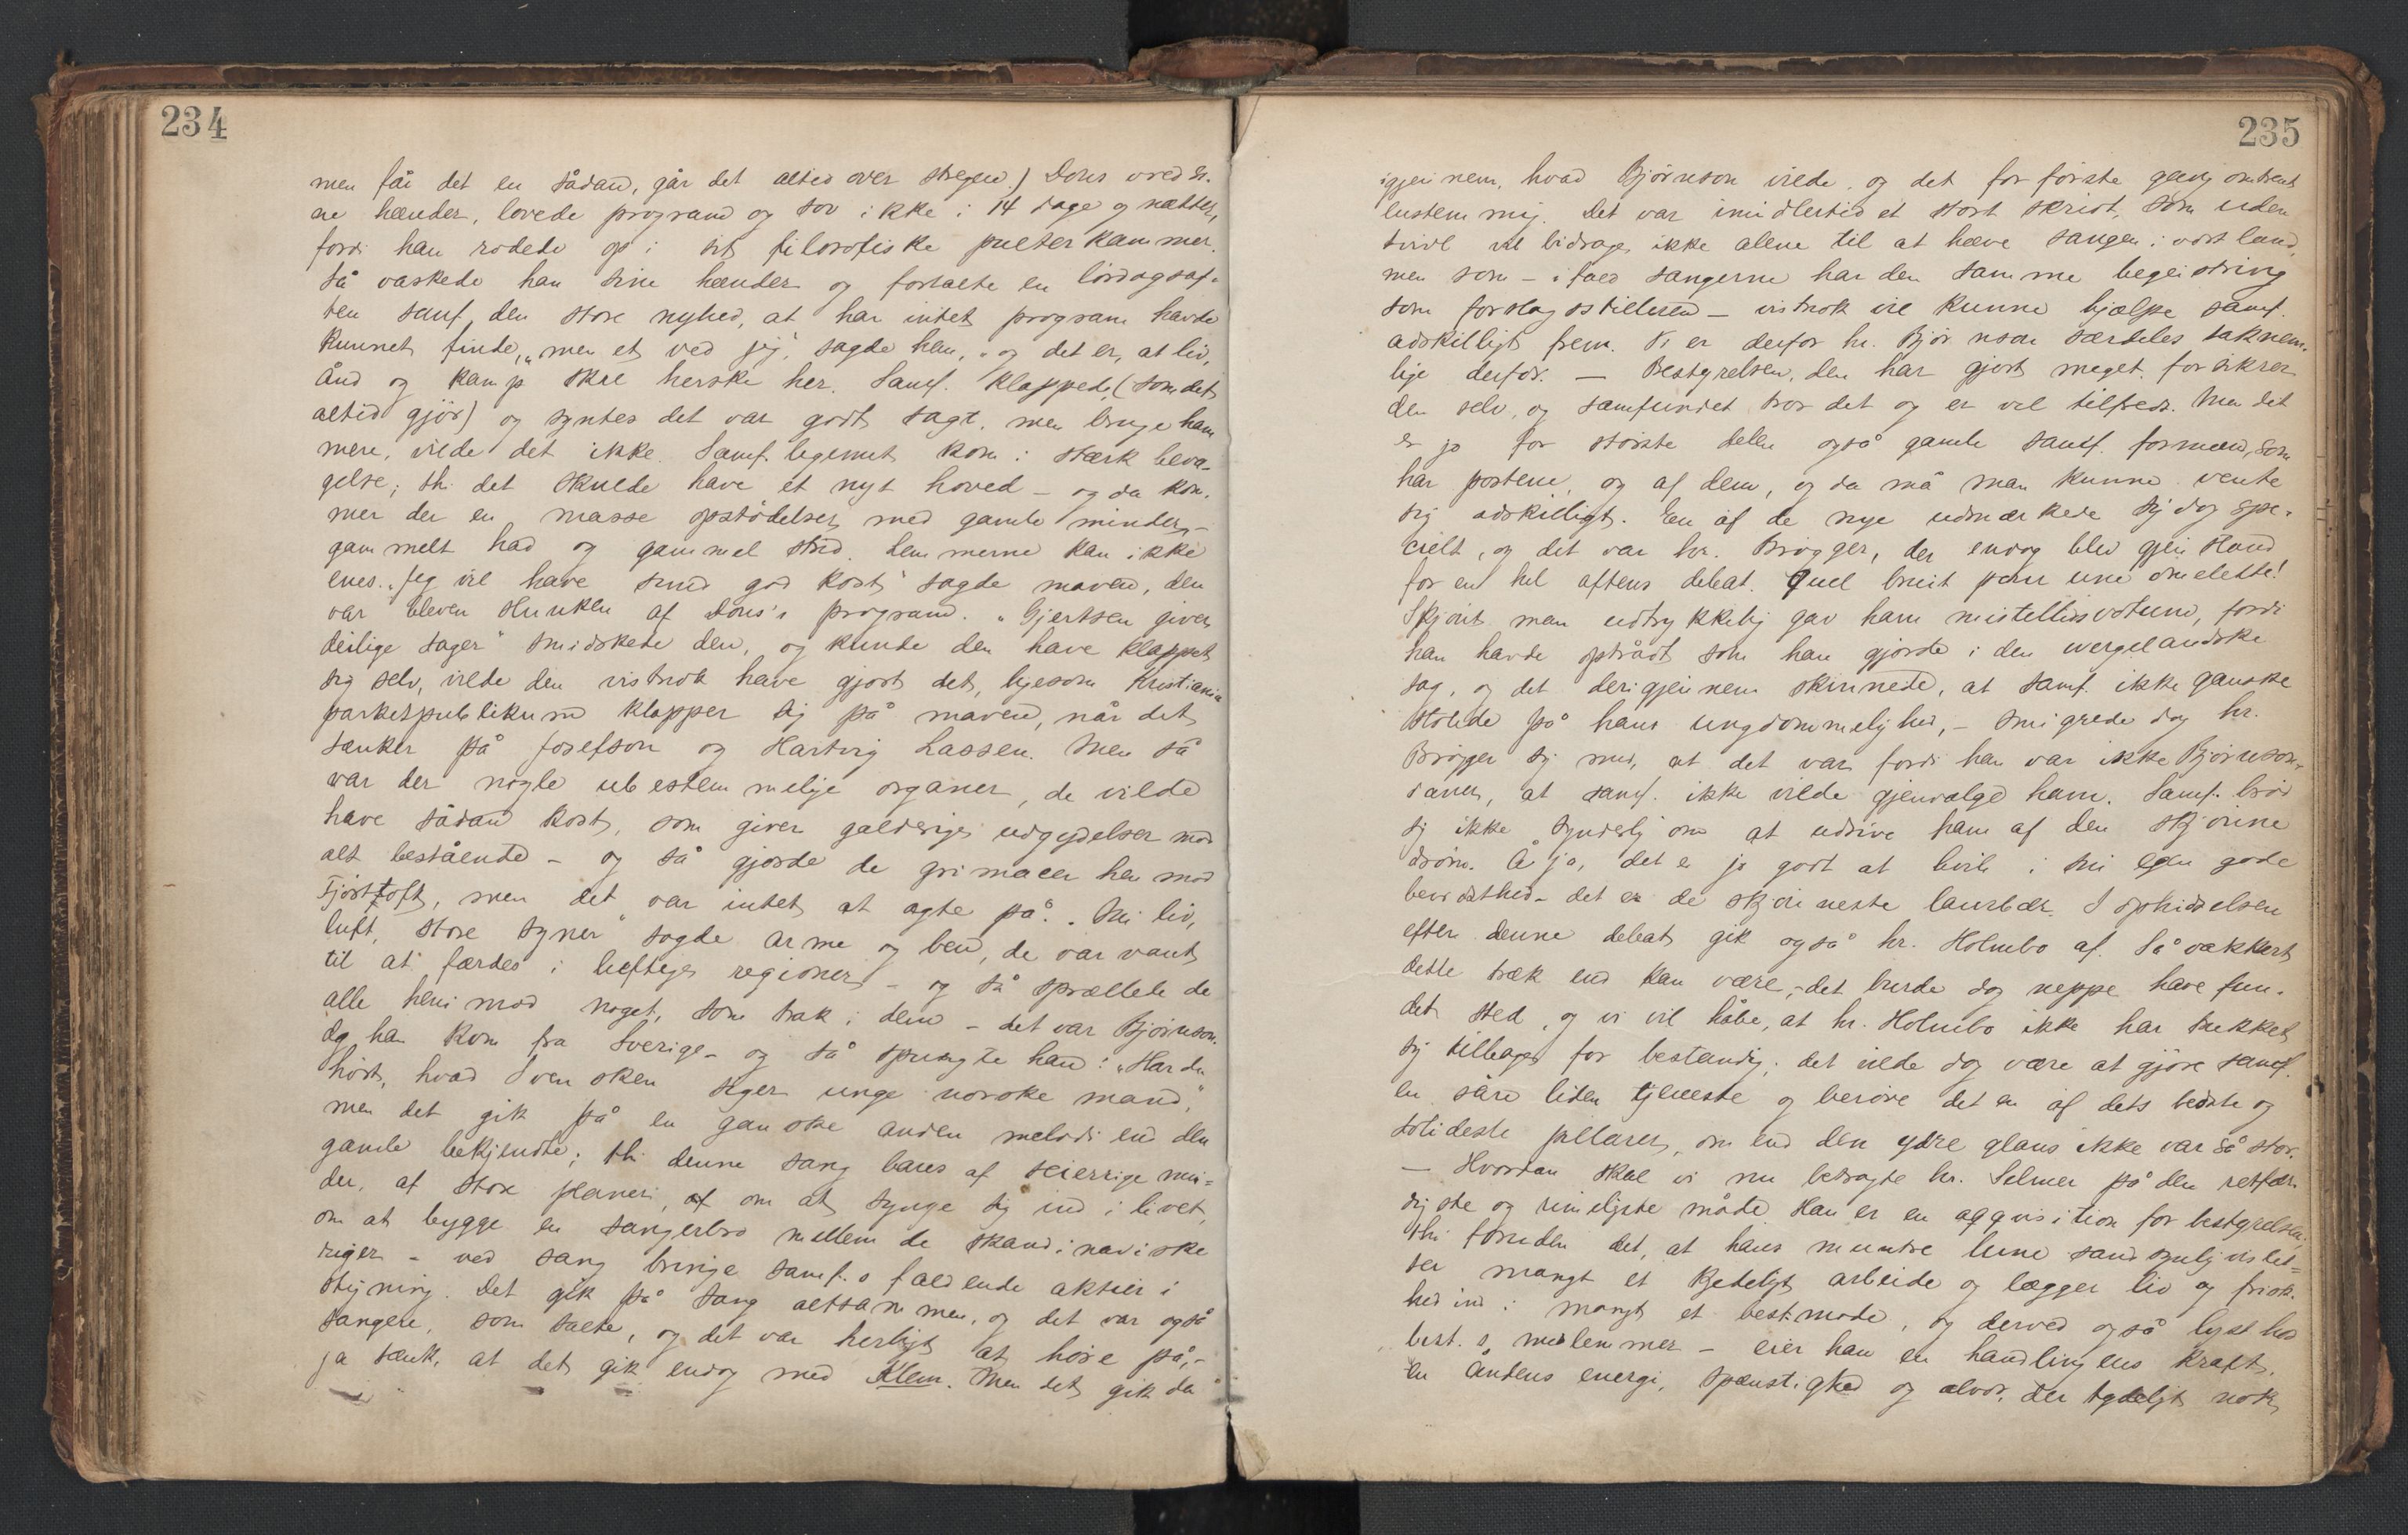 234
men får det en sådan, går det altid over stregen.) Dons vred si-
ne hænder, lovede program og sov ikke i 14 dage og nætter,
fordi han rodede op i sit filosofiske pulterkammer.
Så vaskede han sine hænder og fortalte en lørdagsaf-
ten samf. den store nyhed, at han intet program havde
kunnet finde, „men et ved jeg“, sagde han, „og det er, at liv,
ånd og kamp skal herske her. Samf. klappede, (som det
altid gjør) og syntes det var godt sagt, men bruge ham
mere, vilde det ikke. Samf. legemet kom i stærk bevæ-
gelse; thi det skulde have et nyt hoved – og da kom-
mer der en masse opstødelser med gamle minder, –
gammelt had og gammel strid. Lemmerne kan ikke
enes. „Jeg vil have sund god kost“ sagde maven, den
var bleven slunken af Dons's program. „Gjertsen giver
deilige sager“ smidskede den, og kunde den have klappet
sig selv, vilde den vistnok have gjort det, ligesom Kristiania
parketpublikum klapper sig på maven, når det
tænker på Josefson og Hartvig Lassen. Men så
var der nogle ubestemmelige organer, de vilde
have sådan kost, som giver galdesyge udgydelser mod
alt bestående – og så gjorde de grimacer hen mod
Fjørtoft, men det var intet at agte på. „Nei liv,
luft, store syner“ sagde arme og ben, de var vant
til at færdes i luftige regioner – og så sprællede de
alle hen imod noget, som trak i dem – det var Bjørnson.
Og han kom fra Sverige – og så spurgte han: „Har du
hørt, hvad Svensken siger unge norske mand,“
men det gik på en ganske anden melodi end den
gamle bekjendte; thi denne sang bares af seierrige min-
der, af store planer, af om at synge sig ind i livet,
om at bygge en sangerbro mellem de skandinaviske
riger – ved sang bringe samf.s faldende aktier i
stigning. Det gik på sang altsammen, og det var også
sangere, som talte, og det var herligt at høre på, –
ja tænk, at det gik endog med Klem. Men det gik da
235
igjennem, hvad Bjørnson vilde, og det for første gang omtrent
enstemmig. Det var imidlertid et stort skridt, som uden
tvivl vil bidrage, ikke alene til at hæve sangen i vort land,
men som – ifald sangerne har den samme begeistring
som forslagsstilleren – vistnok vil kunne hjælpe samf.
adskilligt frem. Vi er derfor hr. Bjørnson særdeles taknem-
lige derfor. — Bestyrelsen, den har gjort meget, forsikrer
den selv, og samfundet tror det og er vel tilfreds. Men det
er jo for største delen også gamle samf. formænd, som
har postene, og af dem, og da må man kunne vente
sig adskilligt. En af de nye udmærkede sig dog spe-
cielt, og det var hr. Brøgger, der endog blev gjenstand
for en hel aftens debat. Quel bruit pour une omelette!
Skjønt man udtrykkelig gav ham mistillidsvotum, fordi
han havde optrådt som han gjorde i den wergelandske
sag, og det derigjennem skinnede, at samf. ikke ganske
stolede på hans ungdommelighed, – smigrede dog hr.
Brøgger sig med, at det var fordi han var ikke Bjørnson-
ianer, at samf. ikke vilde gjenvælge ham. Samf. brød
sig ikke synderlig om at udrive ham af den skjønne
drøm. Å ja, det er jo godt at hvile i sin egen gode
bevidsthed – det er de skjønneste laurbær. I ophidselsen
efter denne debat gik også hr. Holmbo af. Så vakkert
dette træk end kan være, – det burde dog neppe have fun-
det sted, og vi vil håbe, at hr. Holmbo ikke har trukket
sig tilbage for bestandig; det vilde dog være at gjøre samf.
en såre liden tjeneste og berøve det en af dets bedste og
solideste pillarer, om end den ydre glans ikke var så stor.
— Hvordan skal vi nu betragte hr. Selmer på den retfær-
digste og rimeligste måde. Han er en aqqvisition for bestyrelsen;
thi foruden det, at hans muntre lune sandsynligvis let-
ter mangt et kjedeligt arbeide og lægger liv og frisk-
hed ind i mangt et best.møde, og derved også lyst hos
best.s medlemmer – eier han en handlingens kraft,
en åndens energi, spænstighed og alvor, der tydeligt nok